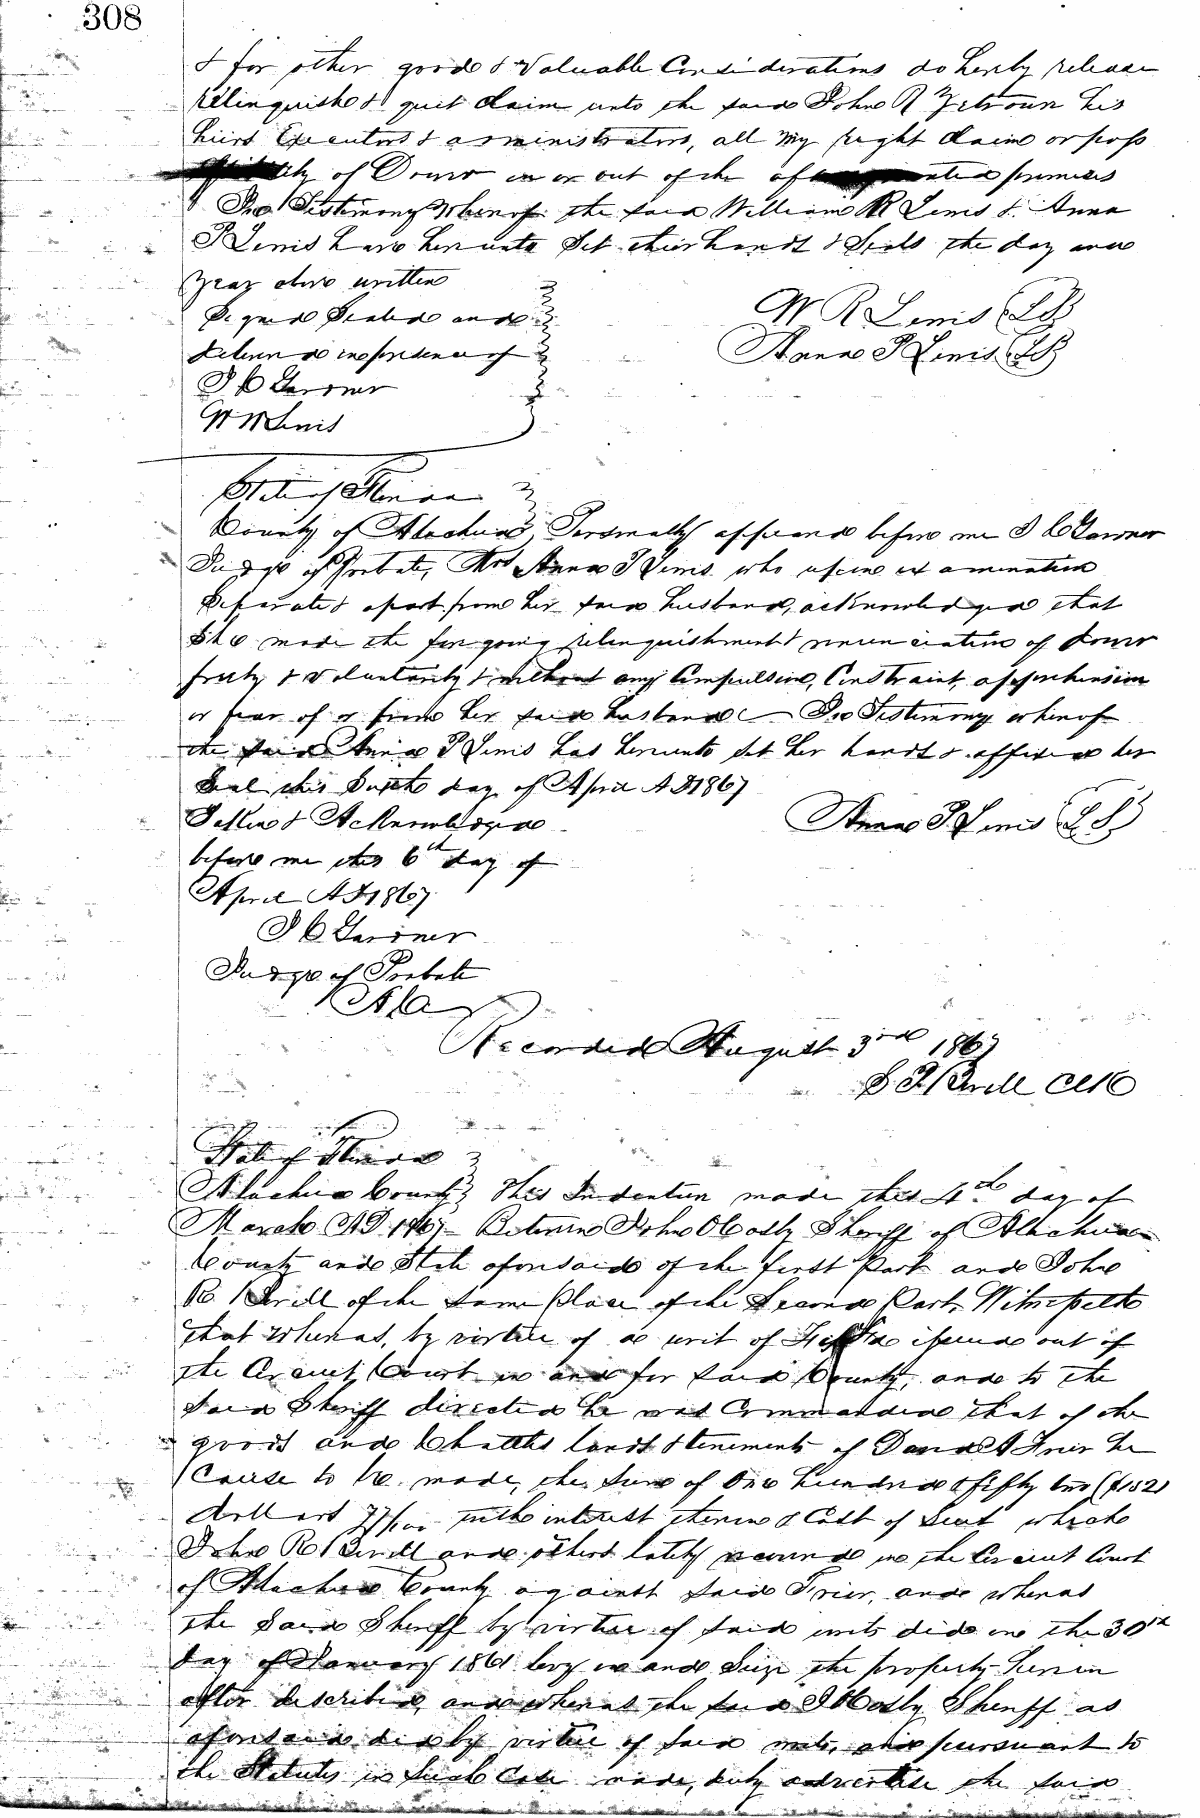 308
& for other good & Valuable Considerations do hereby release
relinquish & quit claim unto the said John R Zetrouer his
heirs Executors & administrators, all my right claim or poss
ibility of Dower in or out of the afore granted premises
In Testimony Whereof the said William R Lewis & Anna
T Lewis have hereunto Set their hands & Seals the day and
year above written
Signed Sealed and
delivered in presence of
W R Lewis (LS)
Anna T Lewis (LS)
J C Gardner
W W Lewis
State of Florida
County of Alachua, Personally appeared before me J C Gardner
Judge of Probate, Mrs Anna T Lewis who upon examination
Separate & apart from her said husband, acknowledged that
She made the foregoing relinquishment & renunciation of dower
freely & Voluntarily & without any Compulsion, Constraint, apprehension
or fear of or from her said husband — In Testimony whereof
the said Anna T Lewis has hereunto set her hands & affixed her
Seal this Sixth day of April A D 1867
Taken & Acknowledged
before me this 6th day of
April A D 1867
Anna T Lewis (L S)
J C Gardner
Judge of Probate
A C
Recorded August 3rd 1867
Clk
State of Florida
Alachua County This Indenture made this 4th day of
March A.D. 1867 Between John O Cosby Sheriff of Alachua
County and State aforesaid of the first Part and John
R of the same place of the Second Part, Witnesseth
that whereas, by virtue of a writ of Fi Fa issued out of
the Circuit Court in and for said County, and to the
said Sheriff directed he was Commanded that of the
goods and Chattels lands & tenements of Frier he
Cause to be made, the sum of One hundred & fifty two ($152)
dollars 77/100 with interest thereon & Cost of Suit which
John R and others lately recovered in the Circuit Court
of Alachua County against said Frier, and whereas
the said Sheriff by virtue of said writs did on the 30th
day of January 1861 levy on and Seize the property herein
after described, and whereas the said J O Cosby Sheriff as
aforesaid did by virtue of said writs, and pursuant to
the Statutes in Such Case made, duly advertise the said